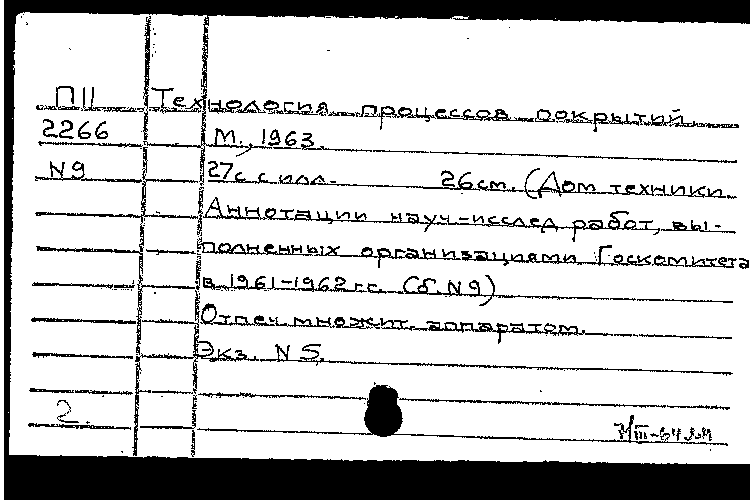 П11 Технология процессов покрытий.
2266 М., 1963.
N9 27с. с илл. 26см. (Дом техники.
Аннотации науч-исслед работ, вы-
полненных организациями Госкомитета
в 1961-1962 гг. (б. N9)
Отпеч. множит. аппаратом.
Экз. N 5.
2.